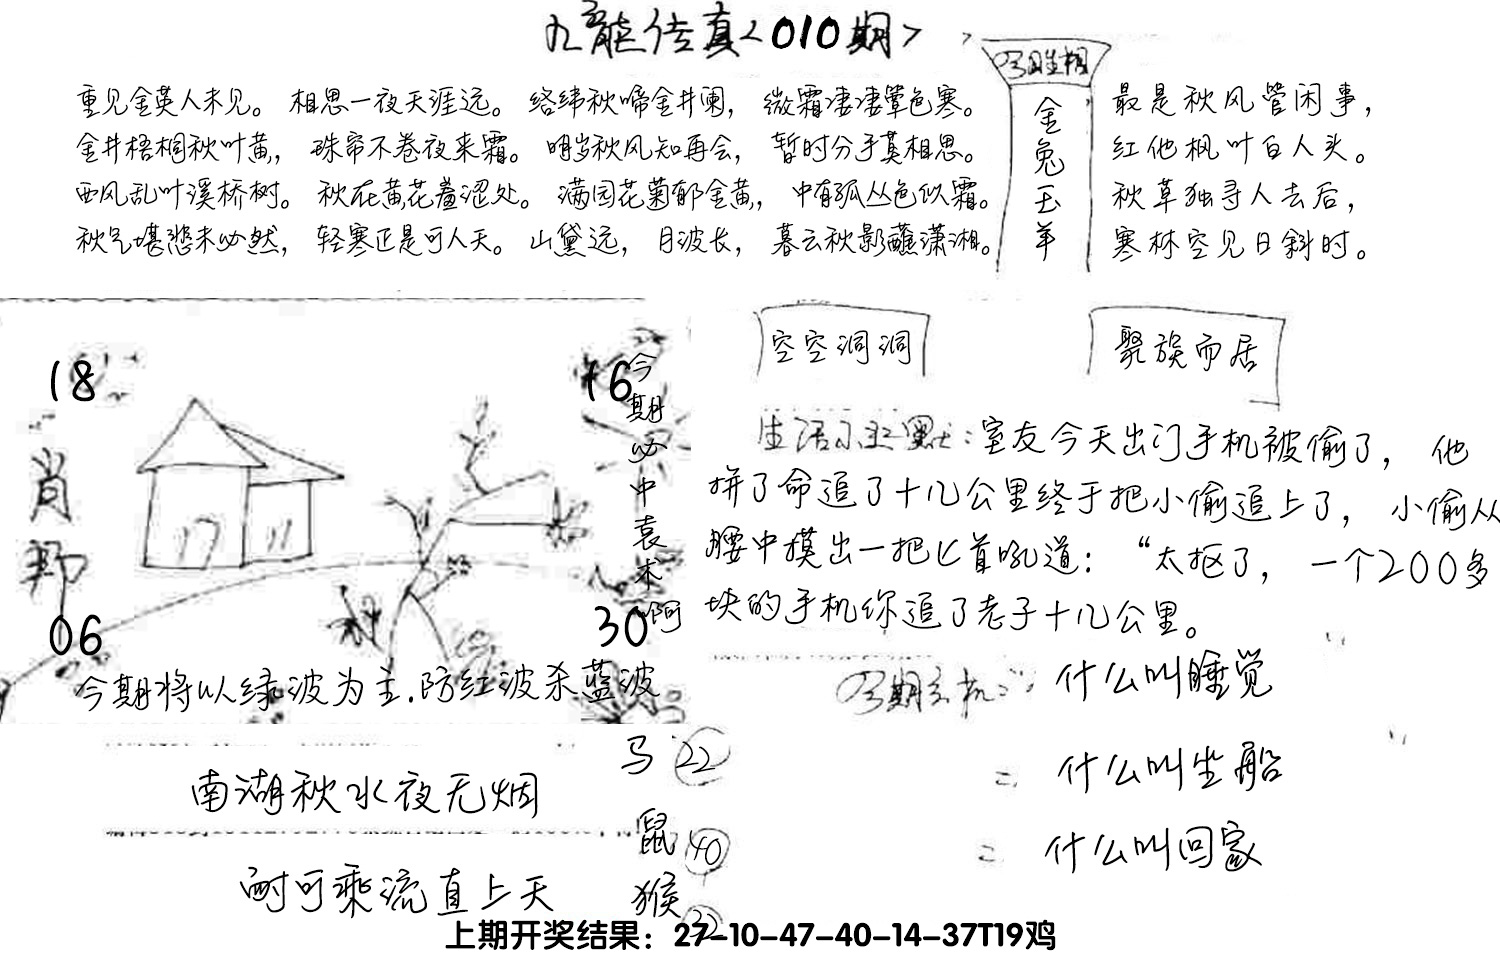 九龍传真<010期>
重见金英人未见。 相思一夜天涯远。 络纬秋啼金井阑， 微霜凄凄簟色寒。
金井梧桐秋叶黄， 珠帘不卷夜来霜。 明岁秋风知再会， 暂时分手莫相思。
西风乱叶溪桥树。 秋在黄花羞涩处。 满园花菊郁金黄， 中有孤丛色似霜。
秋气堪悲未必然， 轻寒正是可人天。 山黛远， 月波长， 暮云秋影蘸潇湘。
今期生相
金兔玉羊
最是秋风管闲事，
红他枫叶白人头。
秋草独寻人去后，
寒林空见日斜时。
18
16
肖
06
30
今期必中袁术啊
今期将以绿波为主.防红波杀蓝波
空空洞洞
聚族而居
生活小幽默：室友今天出门手机被偷了， 他
拼了命追了十几公里终于把小偷追上了， 小偷从
腰中摸出一把匕首吼道： “太抠了， 一个200多
块的手机你追了老子十几公里。
今期玄机： 什么叫睡觉
= 什么叫坐船
= 什么叫回家
南湖秋水夜无烟
耐可乘流直上天
马 22
鼠 40
猴 32
上期开奖结果：27-10-47-40-14-37T19鸡